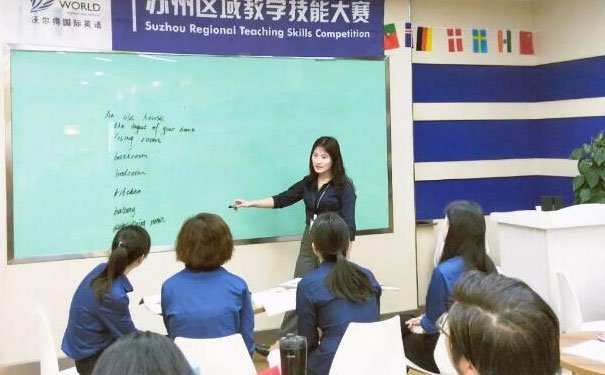 WORLD
沃尔得国际英语
苏州区域教学技能大赛
Suzhou Regional Teaching Skills Competition
house
the layout of your home
living room
bathroom
bedroom
kitchen
room